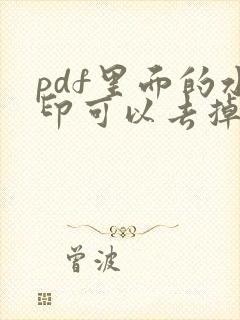 pdf里面的水
印可以去掉
曾波